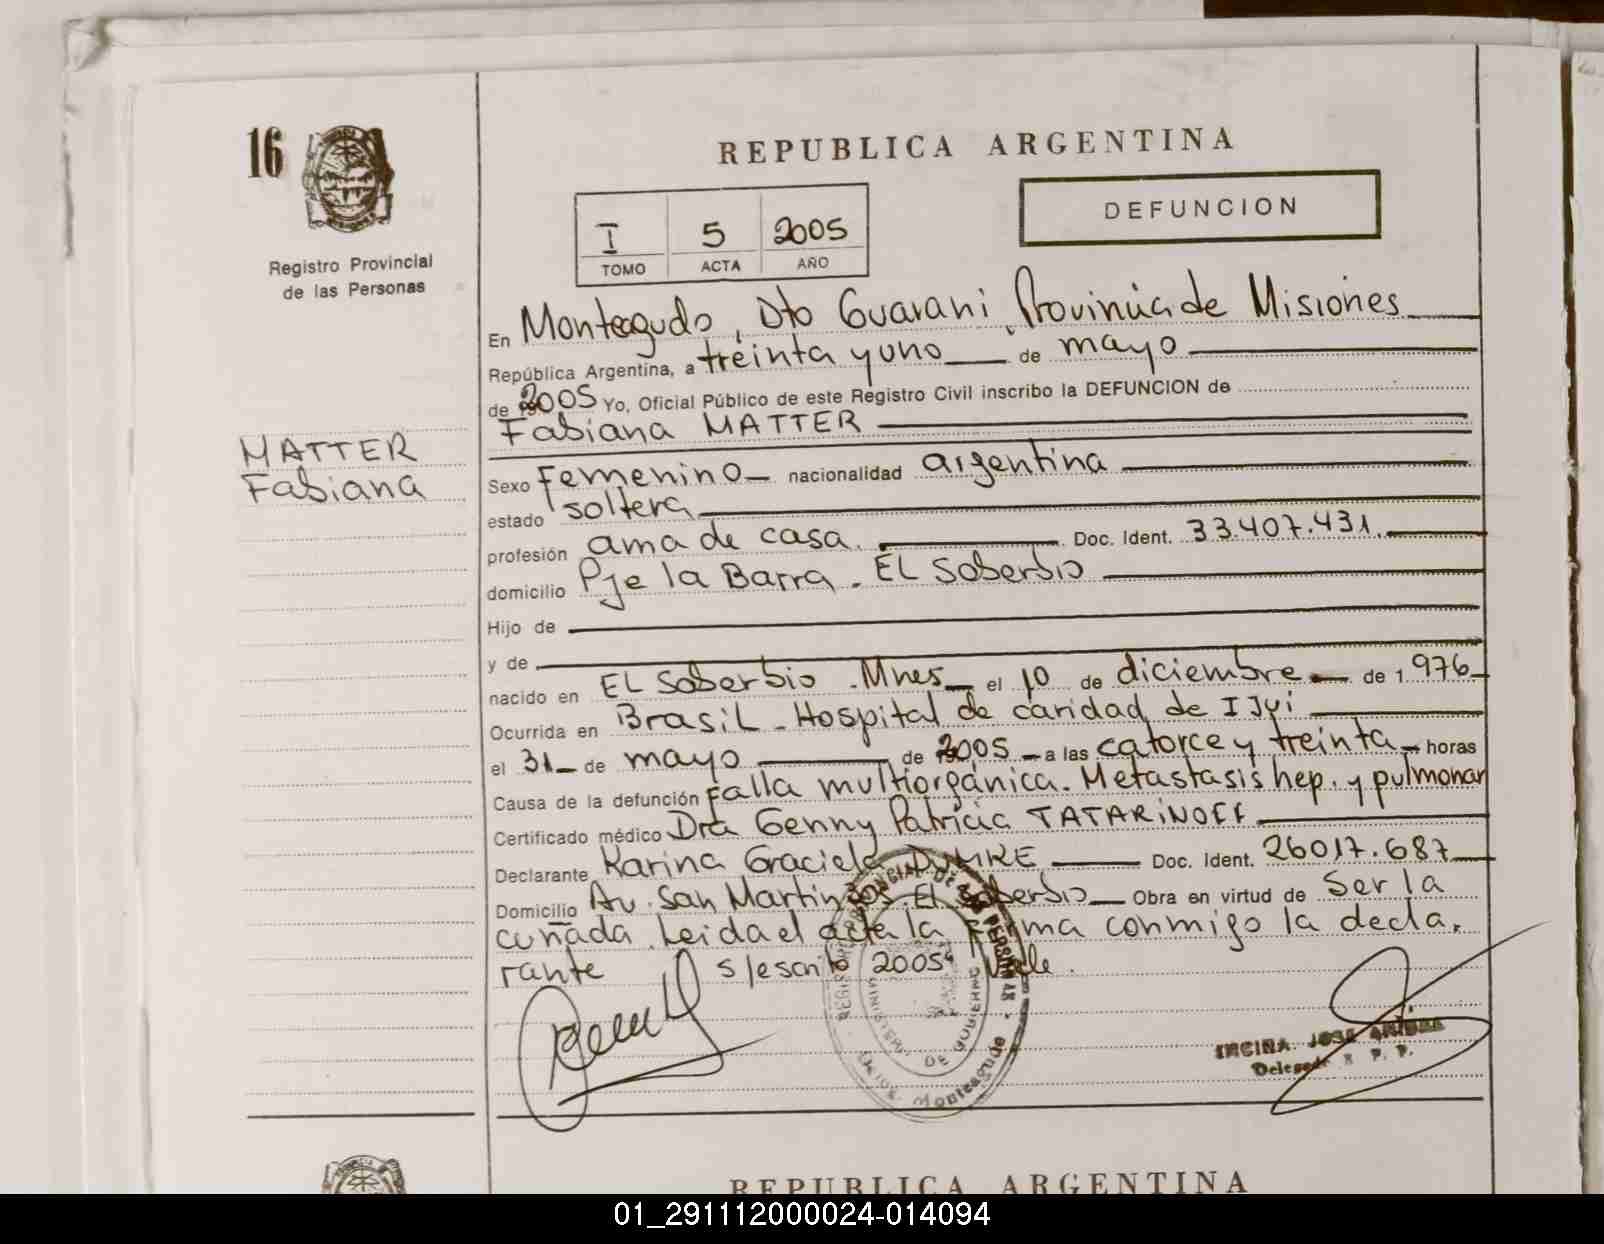 16
Registro Provincial
de las Personas
REPUBLICA ARGENTINA
I 5 2005
TOMO ACTA AÑO
DEFUNCION
MATTER
Fabiana
En Monteagudo, Dto Guarani, Provincia de Misiones
República Argentina, a treinta y uno de mayo
de 2005 Yo, Oficial Público de este Registro Civil inscribo la DEFUNCION de
Fabiana MATTER
Sexo Femenino nacionalidad argentina
estado soltera
profesión ama de casa. Doc. Ident. 33.407.431.
domicilio Pje la Barra. EL Soberbio
Hijo de
y de
nacido en EL Soberbio. Mnes el 10 de diciembre de 1.976
Ocurrida en Brasil - Hospital de caridad de IJyi
el 31 de mayo de 2005 a las catorce y treinta horas
Causa de la defunción Falla multiorgánica. Metastasis hep. y pulmonar
Certificado médico Dra Genny Patricia TATARINOFF
Declarante Karina Graciela Doc. Ident. 26017.687
Domicilio Av. San Martin El Soberbio Obra en virtud de Ser la
cuñada. Leida el acta la Firma conmigo la decla.
rante s/escrito 2005 Vale.
MINISTERIO DE GOBIERNO
Monteagudo
JOSE
Delegado R. P. P.
REPUBLICA ARGENTINA
01_291112000024-014094